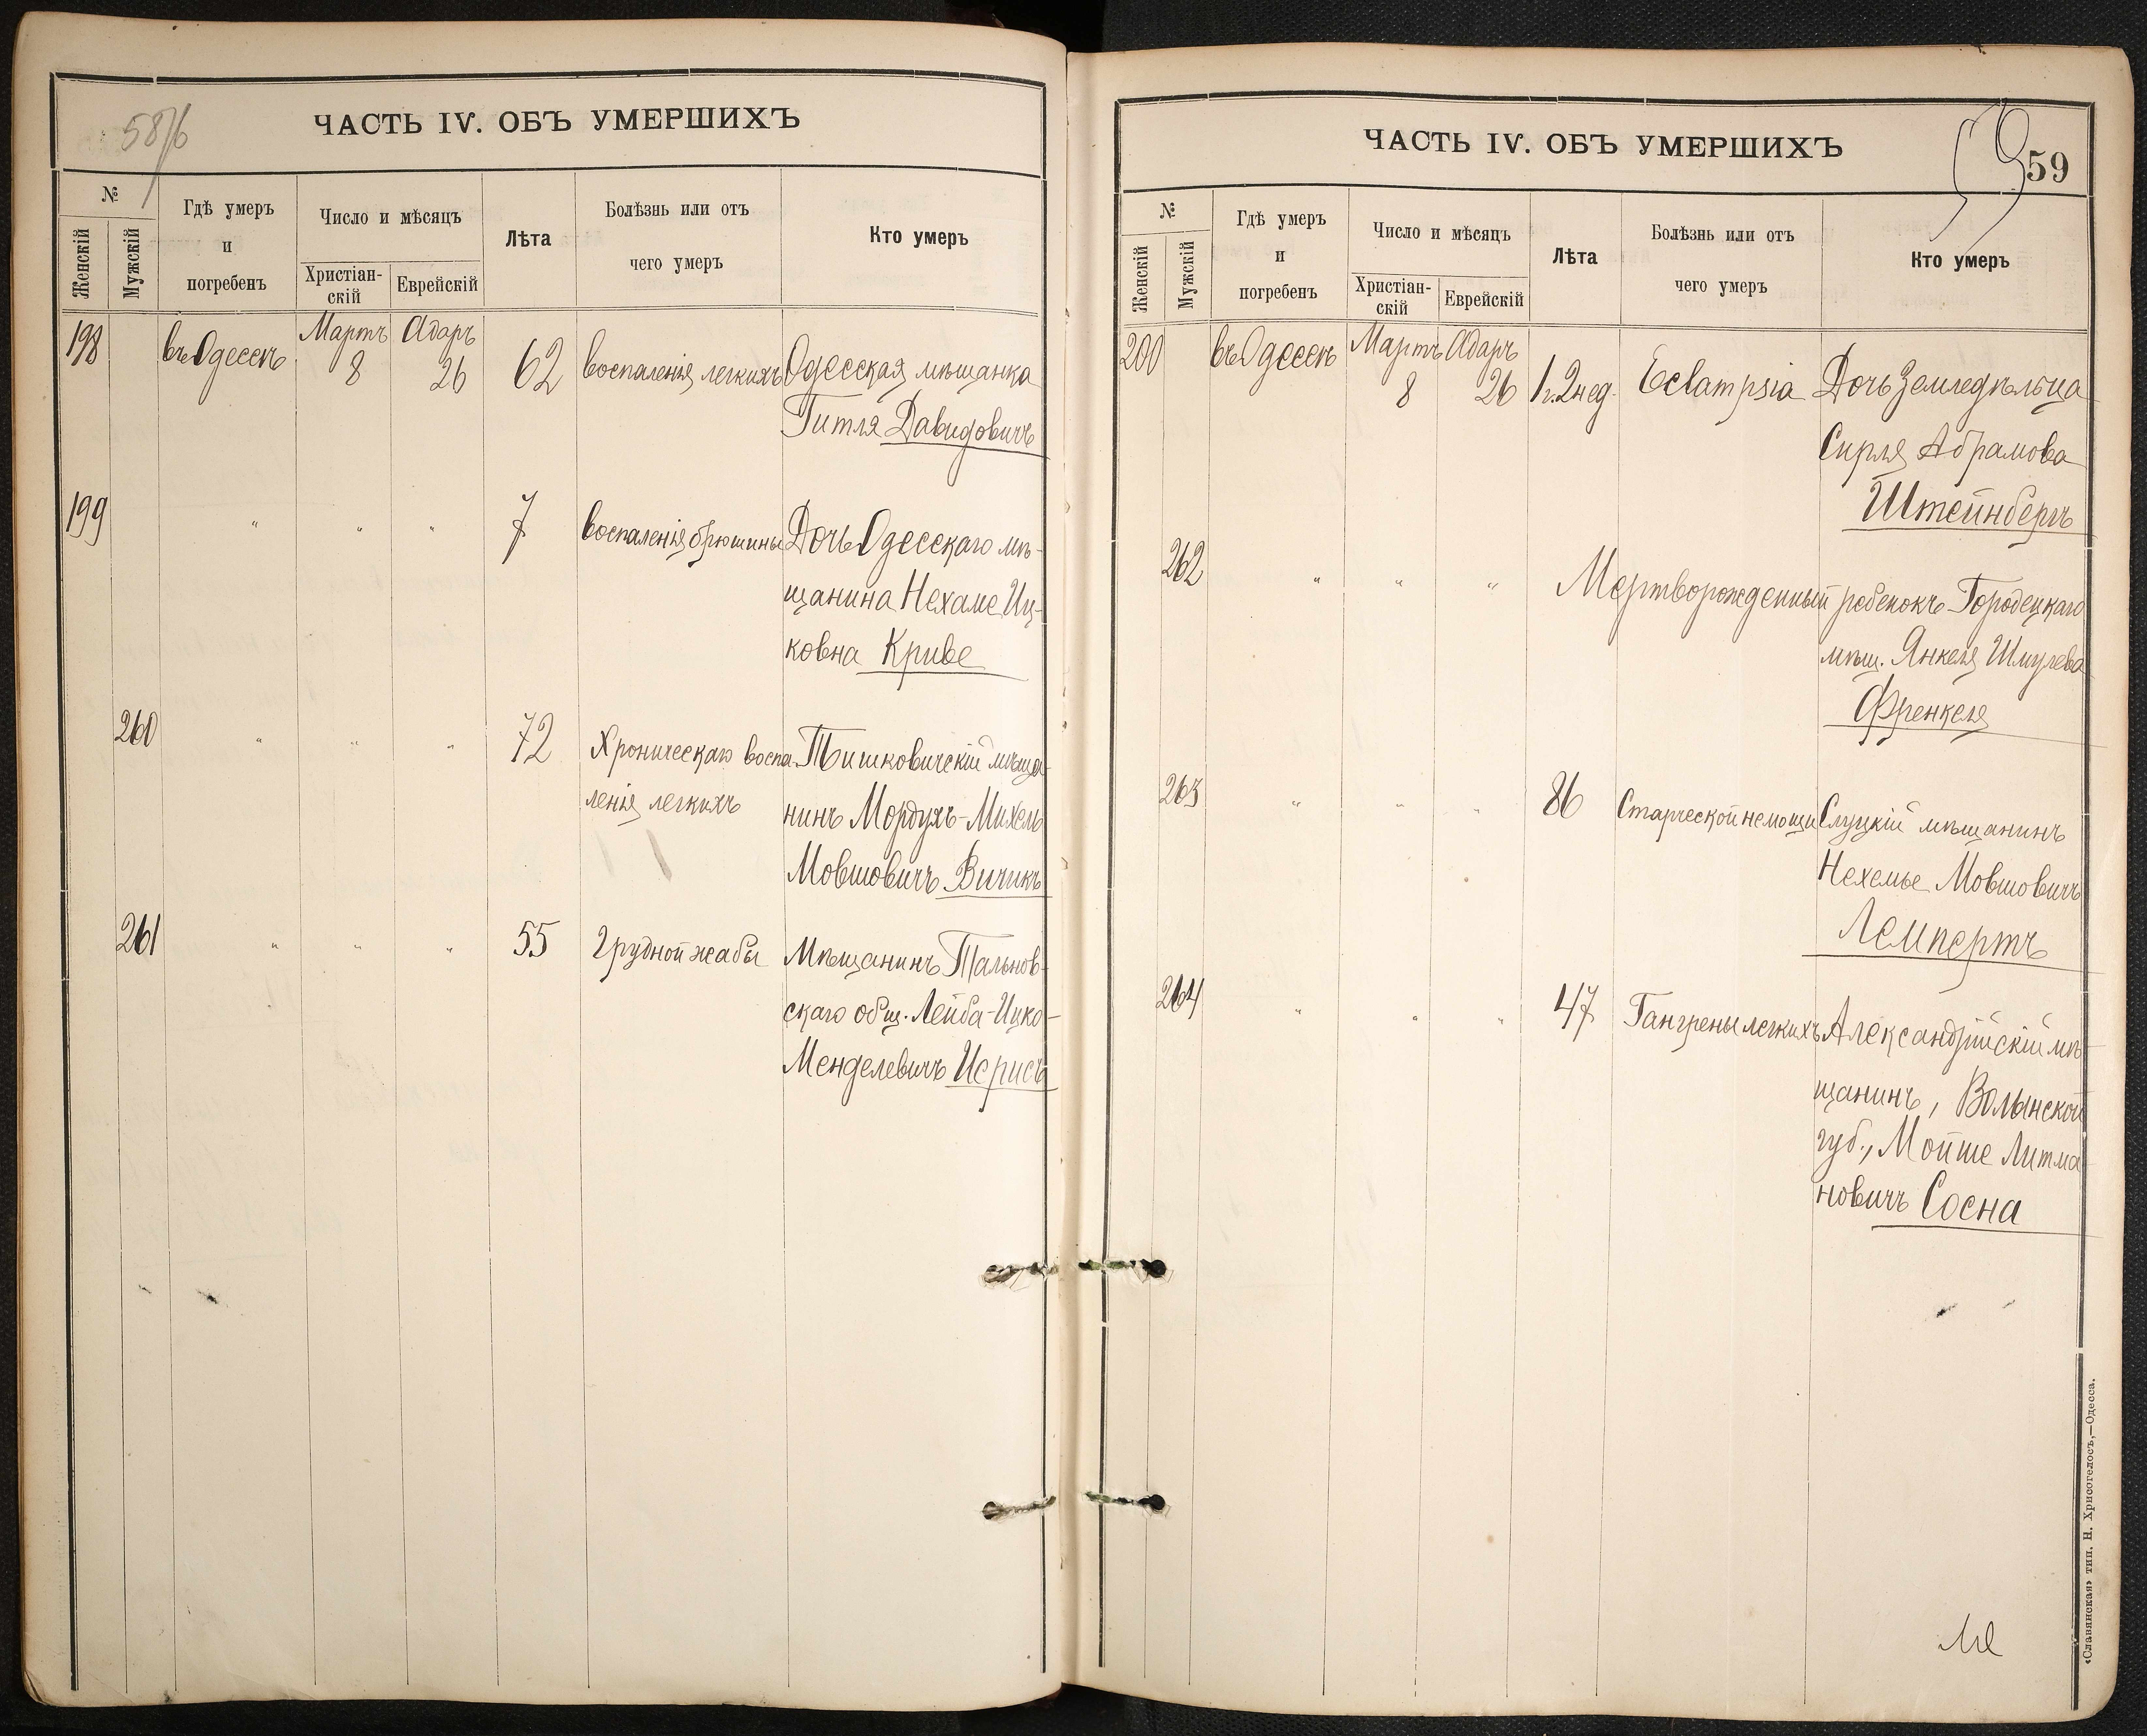 58/б
ЧАСТЬ IV. ОБЪ УМЕРШИХЪ
№
Женскій
Мужскій
Гдѣ умеръ
и
погребенъ
Число и мѣсяцъ
Христіан-
скій
Еврейскій
Лѣта
Болѣзнь или отъ
чего умеръ
Кто умеръ
198 въ Одессѣ Мартъ 8 Адаръ 26 62 воспаленія легкихъ Одесская мѣщанка
Гитля Давидовичъ
199 " " " 7 воспаленія брюшины Дочь Одесскаго мѣ-
щанина Нехаме Иц-
ковна Криве
260 " " " 72 Хроническаго воспа- Тишковичскій мѣща-
ленія легкихъ нинъ Мордухъ-Михель
Мовшовичъ Вичикъ
261 " " " 55 Грудной жабы Мѣщанинъ Тальнов-
скаго общ. Лейба-Ицко-
Менделевичъ Исрись
ЧАСТЬ IV. ОБЪ УМЕРШИХЪ
59
59
№
Женскій
Мужскій
Гдѣ умеръ
и
погребенъ
Число и мѣсяцъ
Христіан-
скій
Еврейскій
Лѣта
Болѣзнь или отъ
чего умеръ
Кто умеръ
200 въ Одессѣ Мартъ 8 Адаръ 26 1г. 2 нед. Eclampsia Дочь Земледѣльца
Сирля Абрамова
Штейнбергъ
262 " " " Мертворожденный ребенокъ Городецкаго
мѣщ. Янкеля Шмулева
Френкеля
263 " " " 86 Старческой немощи Слуцкій мѣщанинъ
Нехемье Мовшовичъ
Лемпертъ
264 " " " 47 Гангрены легкихъ Александрійскій мѣ-
щанинъ, Волынской
губ., Мойше Литма-
новичъ Сосна
«Славянская» тип. Н. Хрисогелосъ,—Одесса.